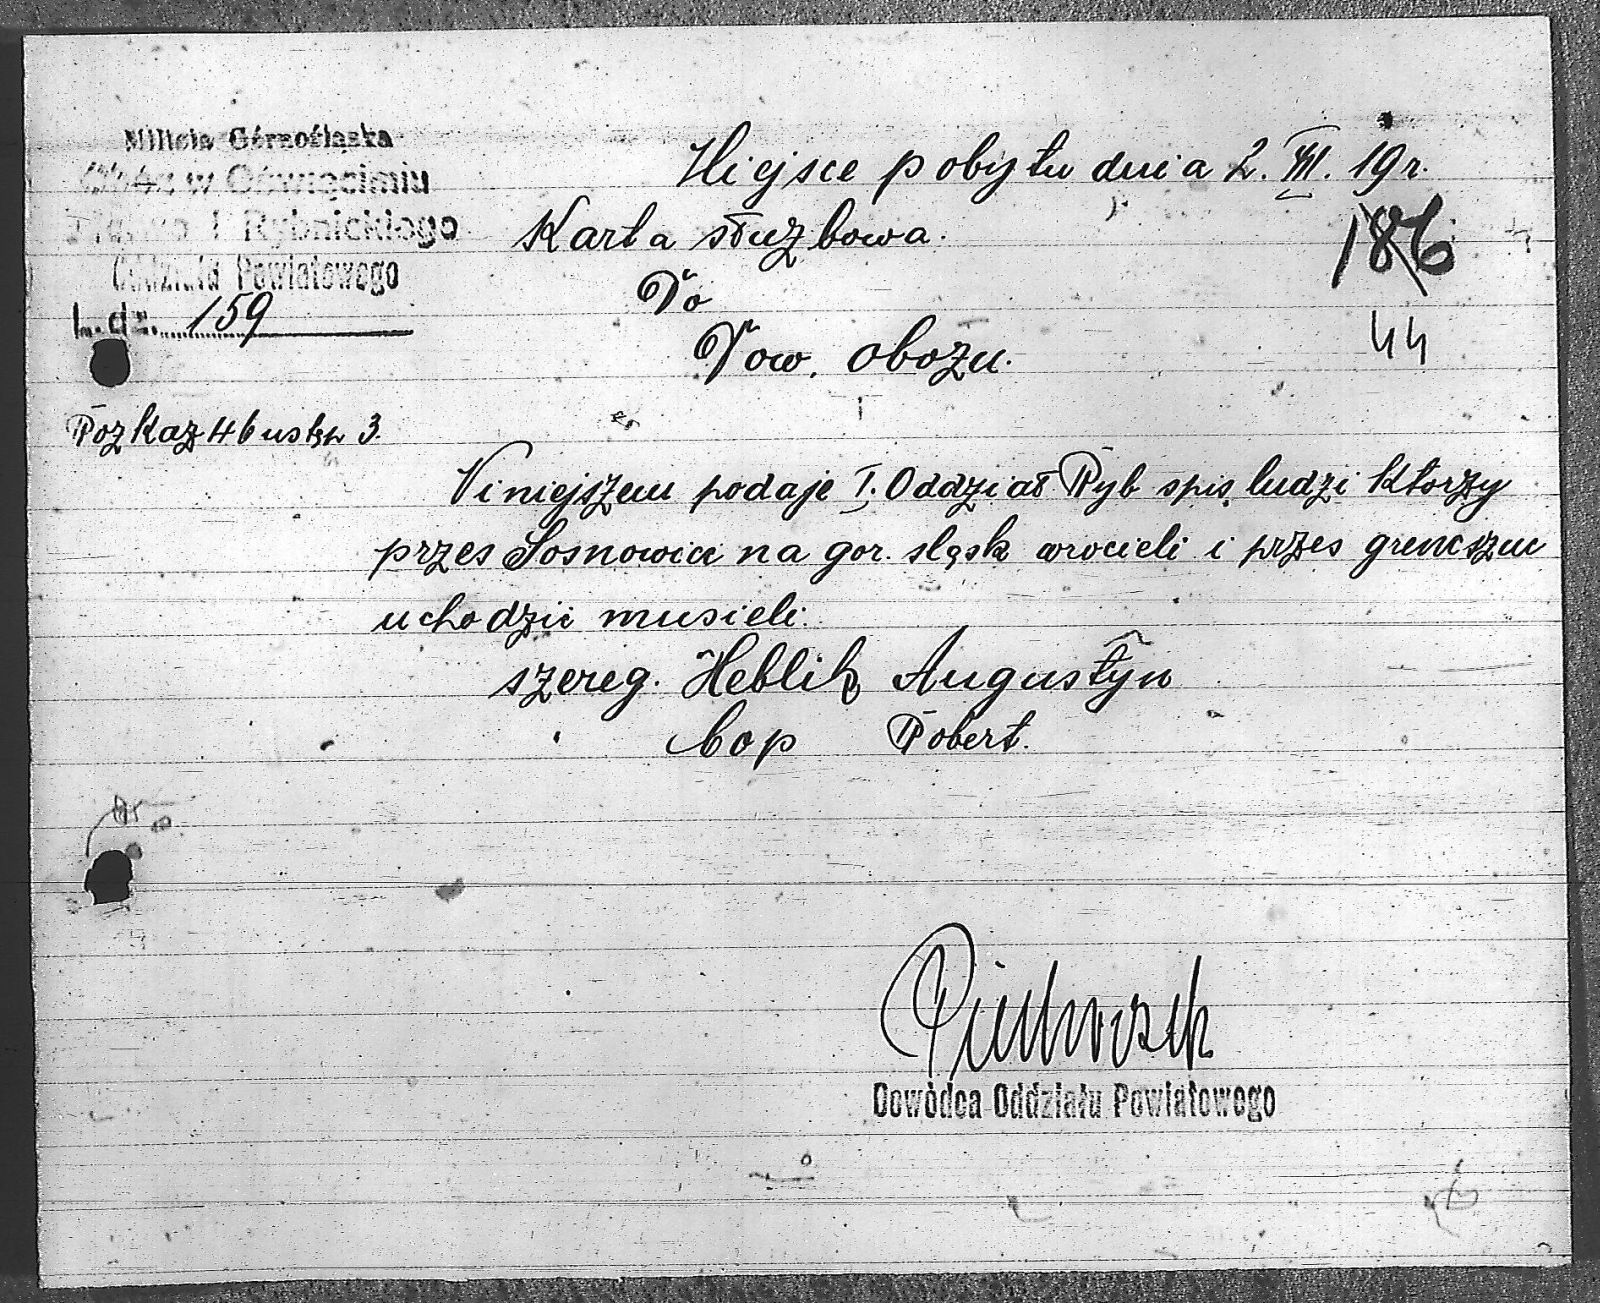 Milicja Górnośląska
w Oświęcimiu
I Rybnickiego
Oddziału Powiatowego
L. dz. 159
Miejsce pobytu dnia 2. VIII. 19 r.
Karta służbowa.
186
Do
44
Dow. obozu.
Rozkaz 46 ustęp 3.
Niniejszem podaje I. Oddział Ryb spis ludzi którzy
przes Sosnowice na gor. sląsk wrocieli i przes
uchodzić musieli:
szereg. Heblik Augustyn
Cop Robert.
Dowódca Oddziału Powiatowego